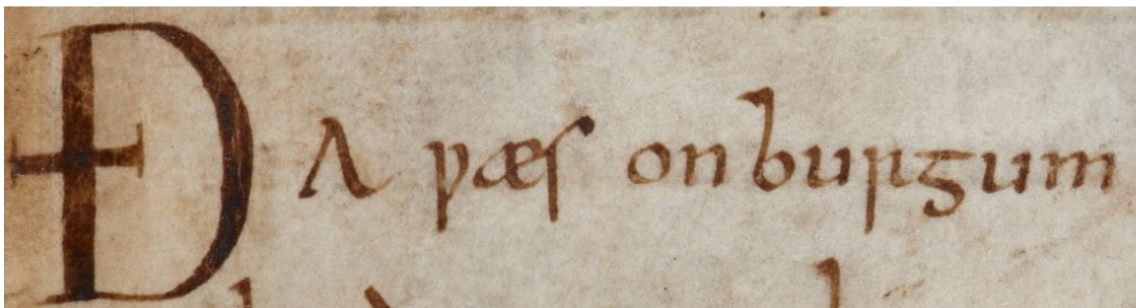 ÐA ƿæs on burgum